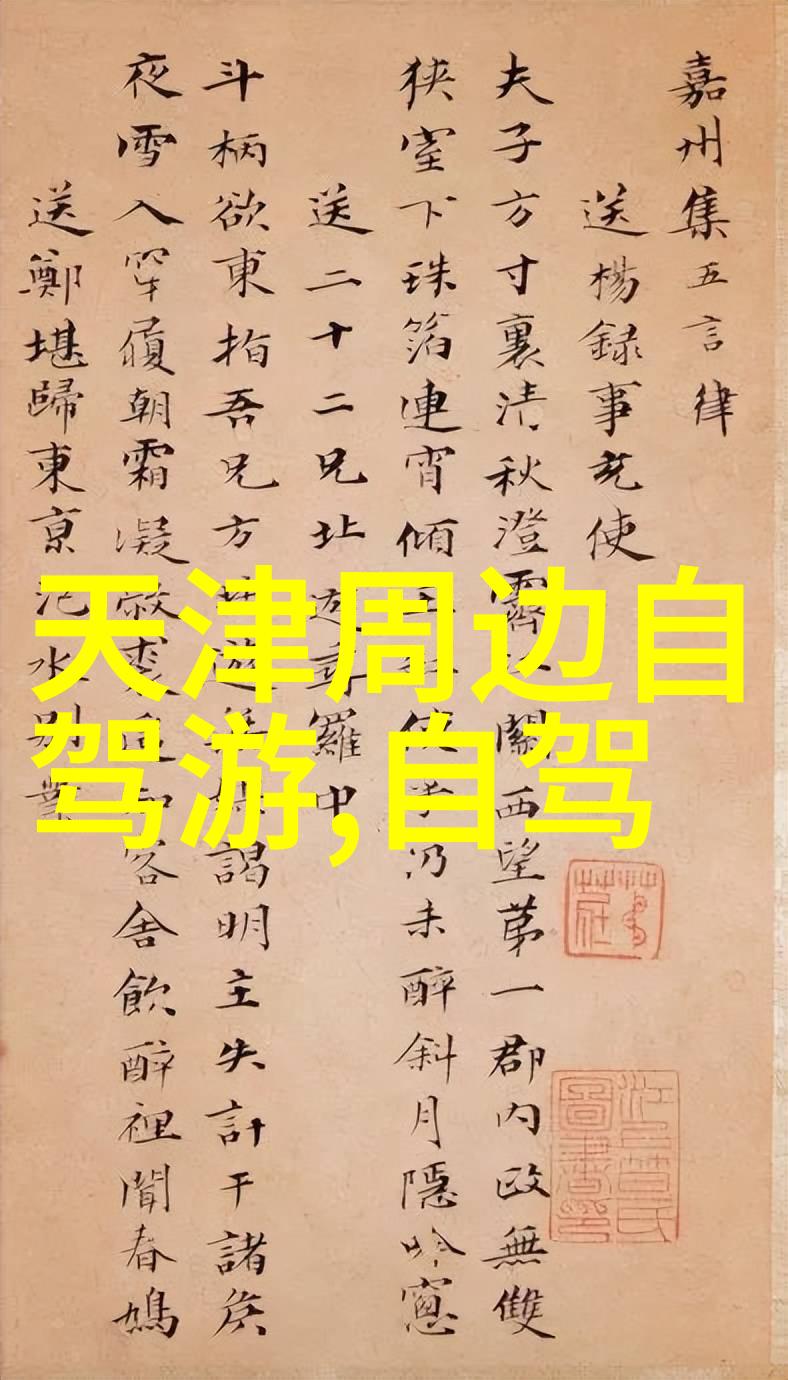 天津周边自
驾游,自驾
嘉州集五言律
送楊録事充使
夫子方寸裏清秋澄霽關西望第一郡内政無雙
狹室下珠箔連宵傾仍未醉斜月隱吟窻
送二十二兄北遊尋羅中
斗柄欲東指吾兄方遊謁明主失計干諸侯
夜雪入穿履朝霜凝敝裘客舍飲醉裡聞春鳩
送鄭堪歸東京汜水别業